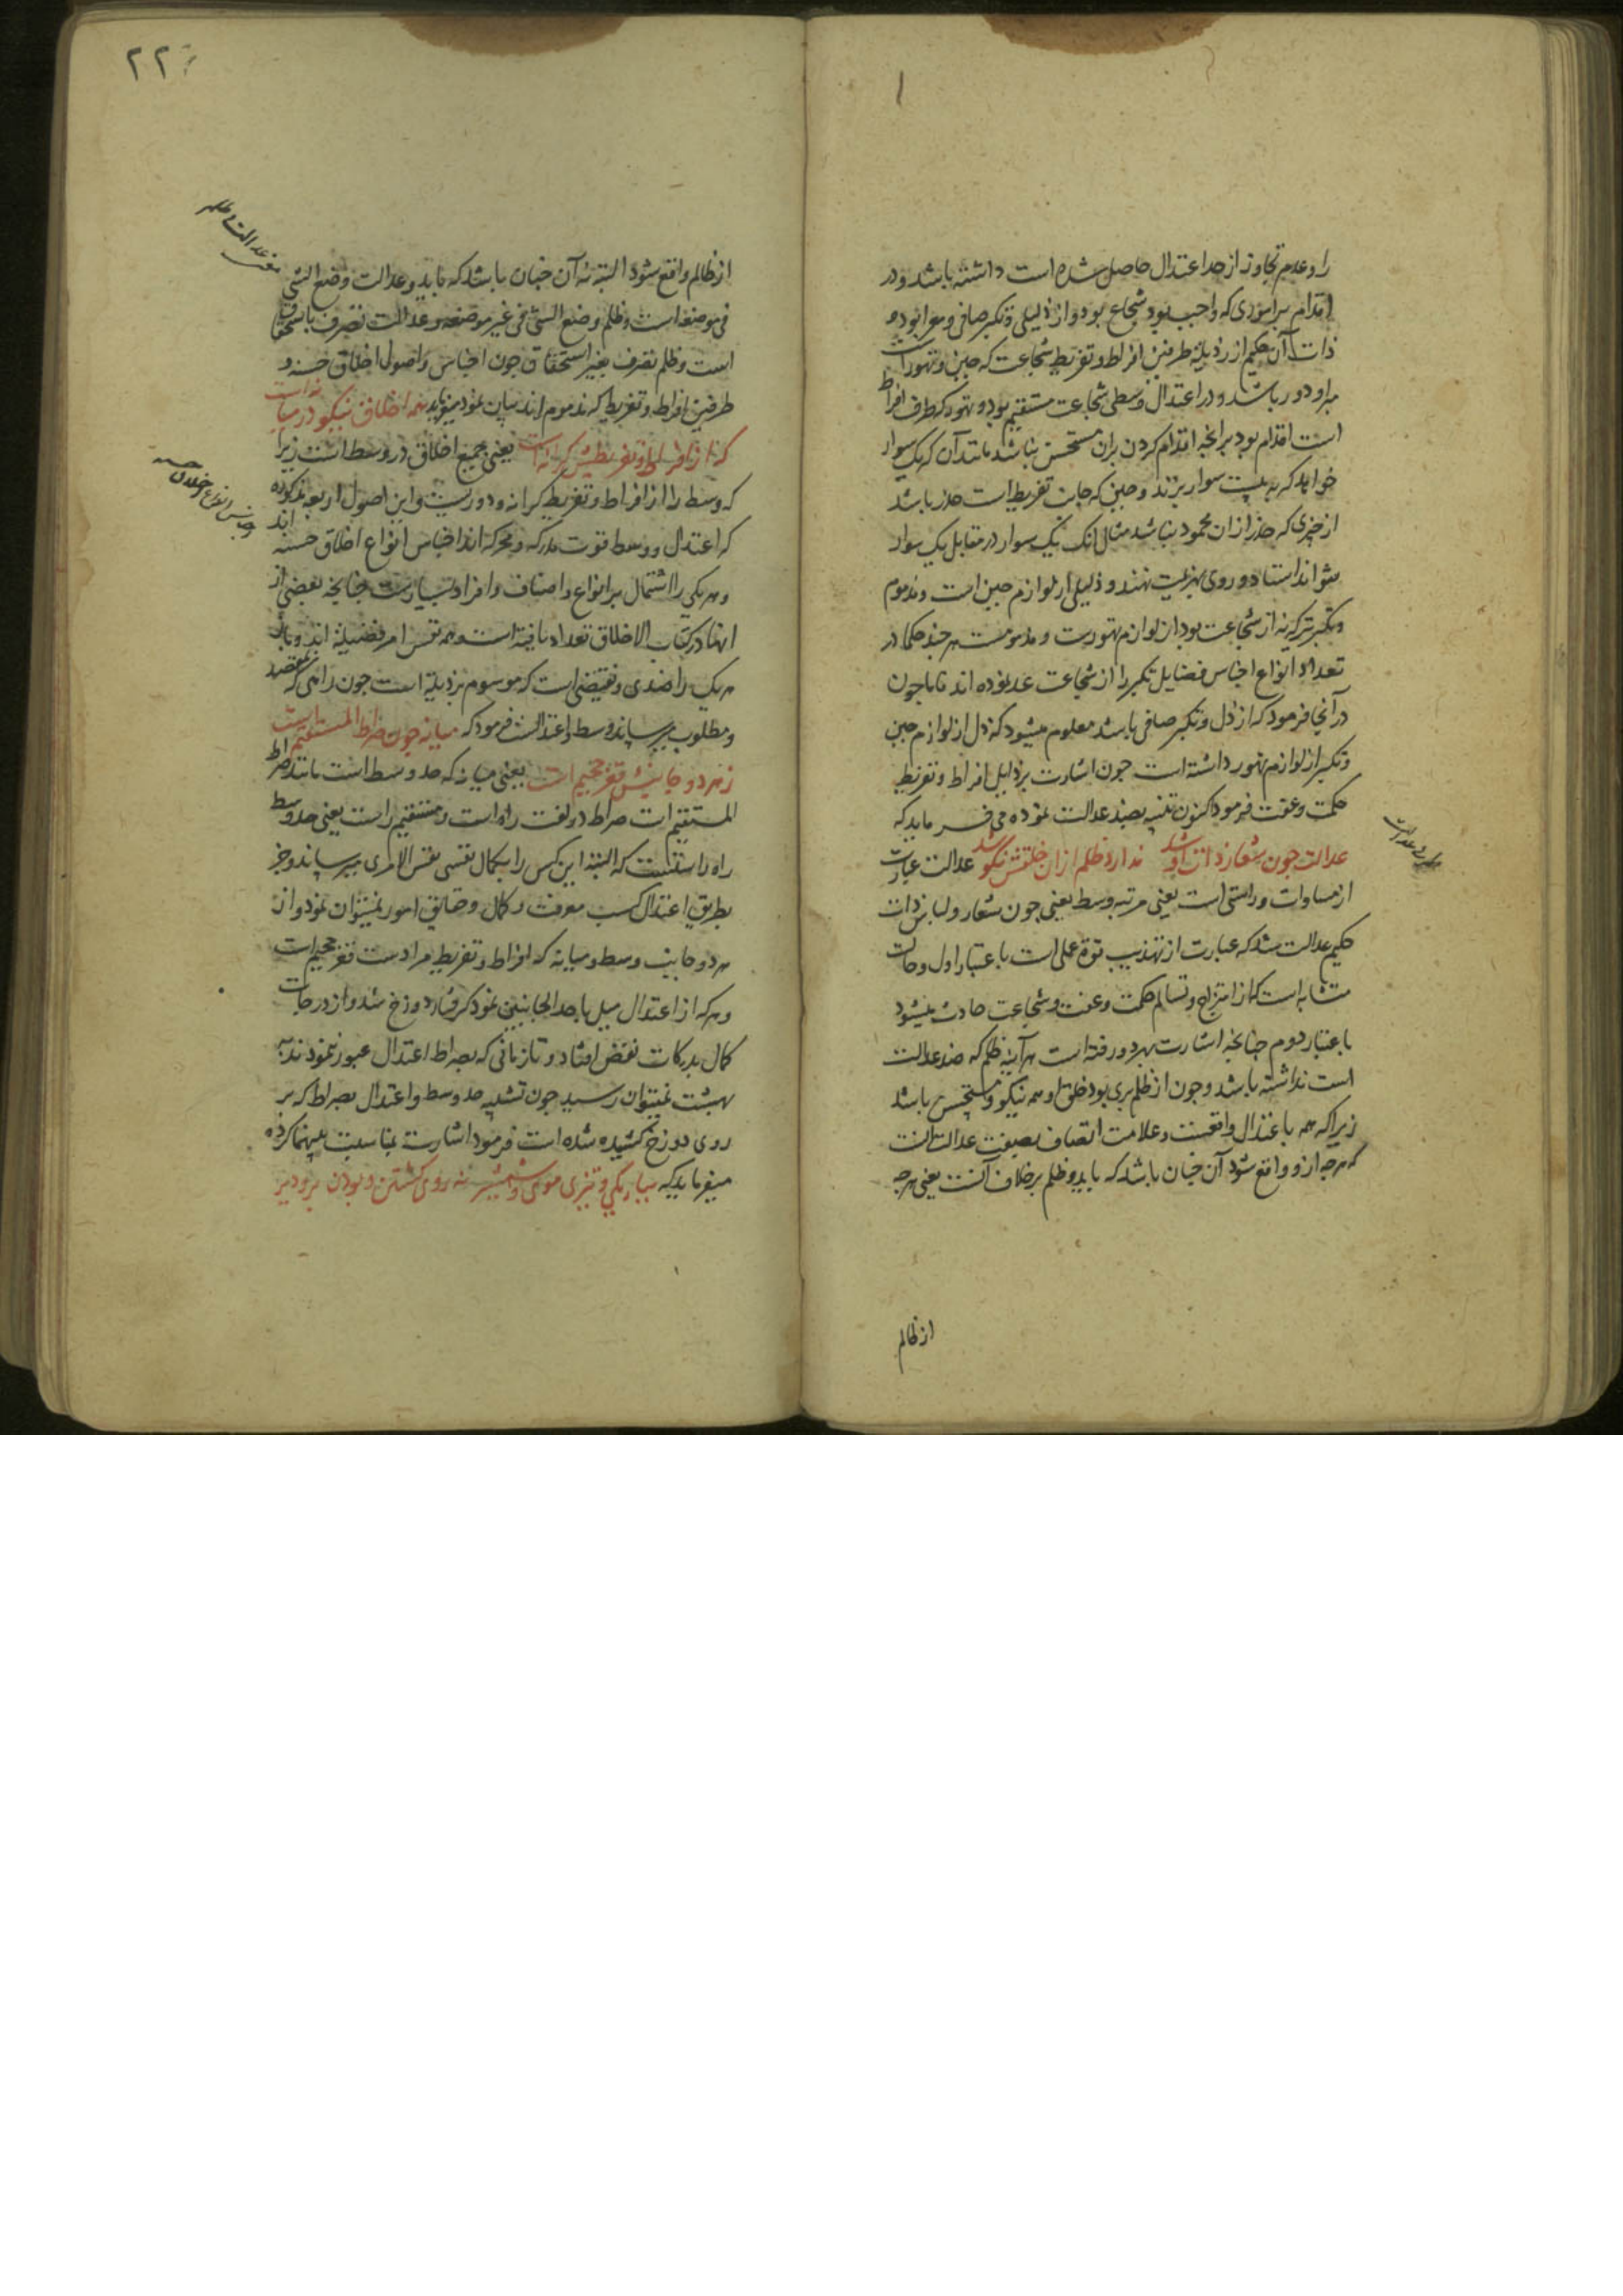 را و عدم تجاوز از حد اعتدال حاصل شده است داشته باشد و در
اقدام بر اموری که واجب بود شجاع بود و از ذلیلی و تکبر صافی و معرا بود و
ذات آن حکیم از رذیلة طرفین افراط و تفریط شجاعت که جبن و تهور است
مبرا و دور باشد و در اعتدال و وسطی شجاعت مستقیم بود و تهور که طرف افراط
است اقدام بود بر آنچه اقدام کردن بران مستحسن نباشد مانند آن که یک سوار
خواهد که به بیست سوار بزند و جبن که جانب تفریط است حذر باشد
از چیزی که حذر از ان محمود نباشد مثال انک یک سوار در مقابل یک سوار
نتواند استاد و روی بهزیمت نهند و ذلیلی از لوازم جبن است و مذموم
و تکبر از لوازم تهورست و مذمومست هر چند حکما در
تعداد انواع اجناس فضایل تکبر را از شجاعت عد نموده اند تا باجون
در آنچا فرمود که از ذل و تکبر صافی باشد معلوم میشود که ذل از لوازم جبن
و تکبر از لوازم تهور داشته است جون اشارت برذایل افراط و تفریط
حکمت و عفت فرمود اکنون تنبیه بضد عدالت نموده می فرماید که
عدالت جون شعار ذات او شد ندارد ظلم ازان خلقش نکو شد عدالت عبارت
از مساوات و راستی است یعنی مرتبه وسط یعنی جون شعار و لباس ذات
حکیم عدالت شد که عبارت از تهذیب قوة عملی است باعتبار اول و حالت
متشابه است که از امتزاج و تسالم حکمت و عفت و شجاعت حادث میشود
باعتبار دوم چنانچه اشارت بهر دو رفته است هر آینه ظلم که ضد عدالت
است نداشته باشد و جون از ظلم بری بود خلق او همه نیکو و مستحسن باشد
زیرا که همه باعتدال واقعست و علامت اتصاف بصفت عدالت آنست
که هرجه ازو واقع شود آن جنان باشد که باید و ظلم بر خلاف آنست یعنی هرجه
از ظالم
۲۲
معنی عدالت و ظلم
از ظالم واقع شود البته نه آن جنان باشد که باید و عدالت وضع الشی
فی موضعه است و ظلم وضع الشی فی غیر موضعه و عدالت تصرف باستحقاق
است و ظلم تصرف بغیر استحقاق جون اجناس و اصول اخلاق حسنه و
طرفین افراط و تفریط که مذموم اند بیان نمود میفرماید همه اخلاق نیکو در میانه است
که از افراط و تفریطش کرانه است یعنی جمیع اخلاق در وسط است زیرا
که وسط را از افراط و تفریط کرانه و دوریست و این اصول اربعه مذکوره
که اعتدال و وسط قوت مدرکه و محرکه اند اجناس انواع اخلاق حسنه اند
و هر یکی را اشتمال بر انواع و اصناف و افراد بسیارست چنانچه بعضی از
انها در کتاب الاخلاق تعداد یافته است
هر یک را ضدی و نقیضی است که موسوم برذیلة است جون راهی که بمقصد
و مطلوب میرساند وسط و اعتدالست فرمود که میانه جون صراط المستقیم است
ز هر دو جانبش قعر جحیم است یعنی میانه که حد وسط است مانند صراط
المستقیم است صراط در لغت راه است و مستقیم راست یعنی حد وسط
راه راستست که البته این کس را بکمال نفسی نفس الامری میرساند و جز
بطریق اعتدال کسب معرفت و کمال و حقایق امور نمیتوان نمود و از
هر دو جانب وسط و میانه که افراط و تفریط مرادست قعر جحیم است
و هر که از اعتدال میل باحد الجانبین نمود گرفتار دوزخ شد و از درجات
کمال بدرکات نقص افتاد و تا زمانی که بصراط اعتدال عبور ننمودند به
بهشت نمیتوان رسید جون تشبیه حد وسط و اعتدال بصراط که بر
روی دوزخ کشیده شده است فرمود اشارت بمناسبت بینهما کرده
میفرماید که بباریکی و تیزی موی و شمشیر نه روی کشتن و بودن برو دیر